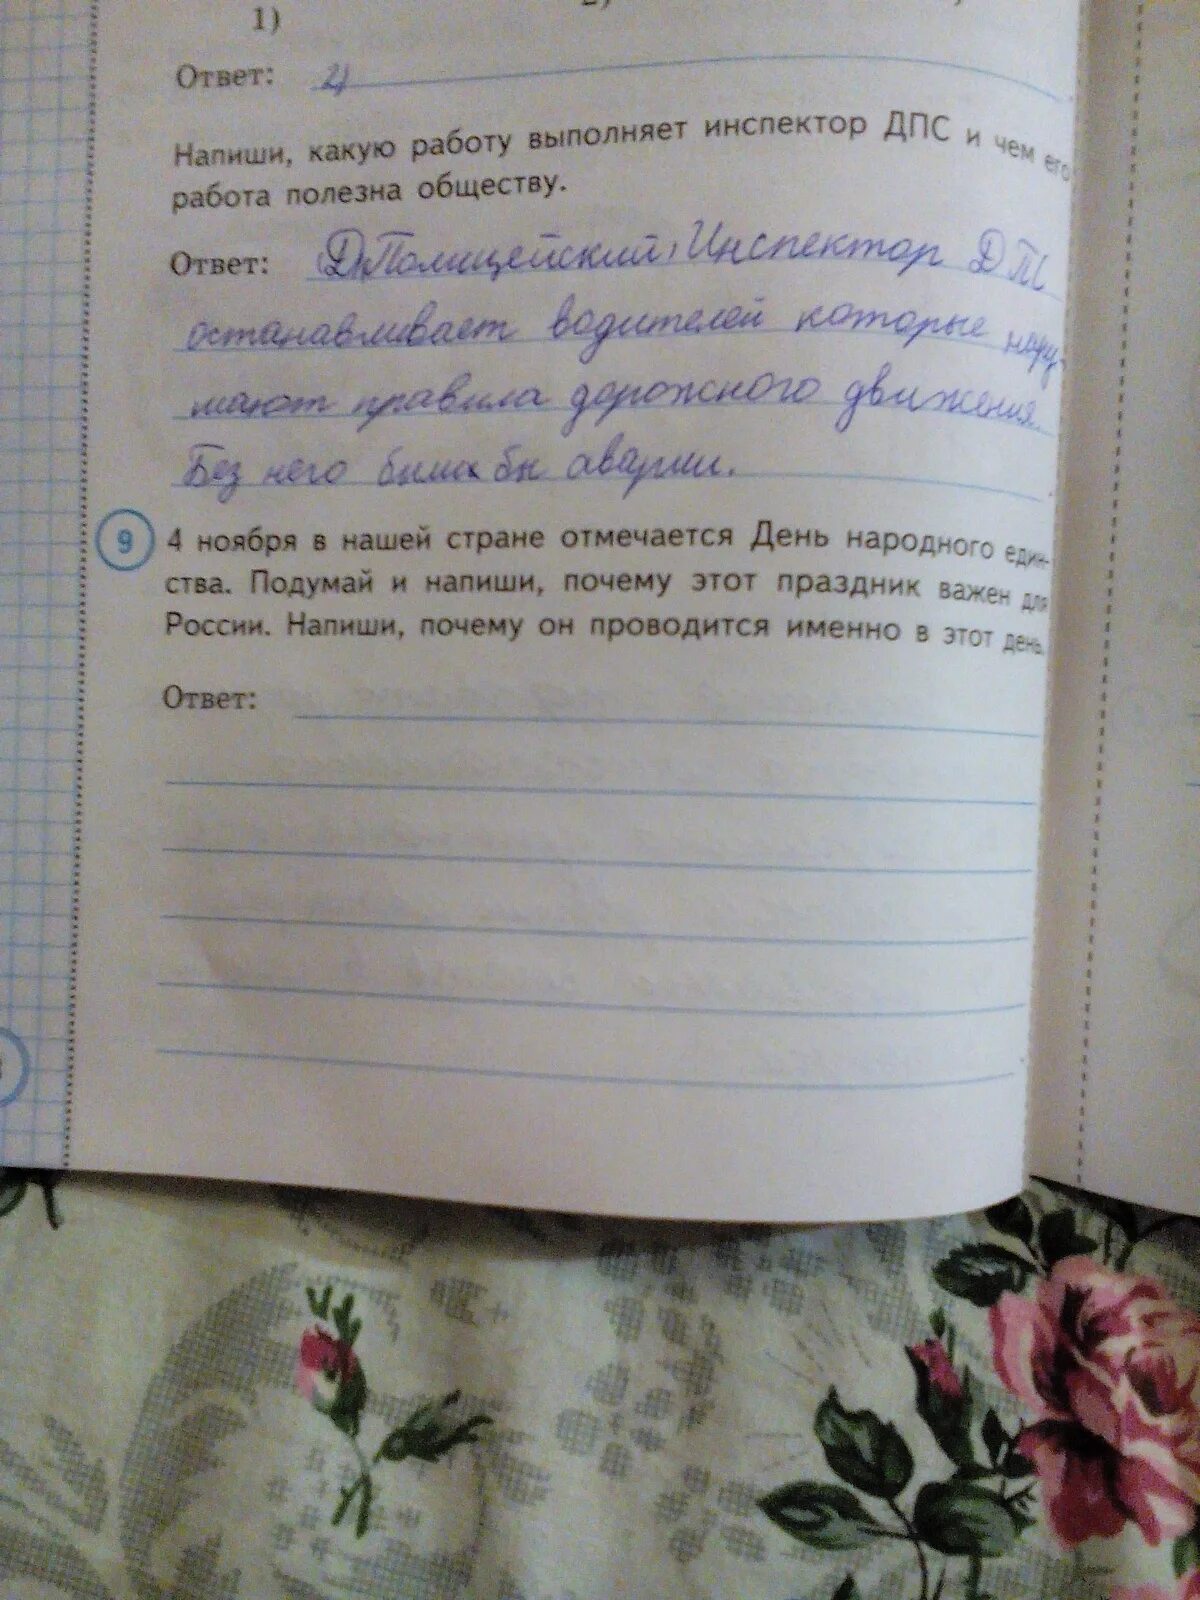 1)
Ответ: 2)
Напиши, какую работу выполняет инспектор ДПС и чем его
работа полезна обществу.
Ответ: Полицейский, Инспектор
останавливает водителей которые нару-
шают правила дорожного движения.
Без него были бы аварии.
9 4 ноября в нашей стране отмечается День народного един-
ства. Подумай и напиши, почему этот праздник важен для
России. Напиши, почему он проводится именно в этот день.
Ответ: